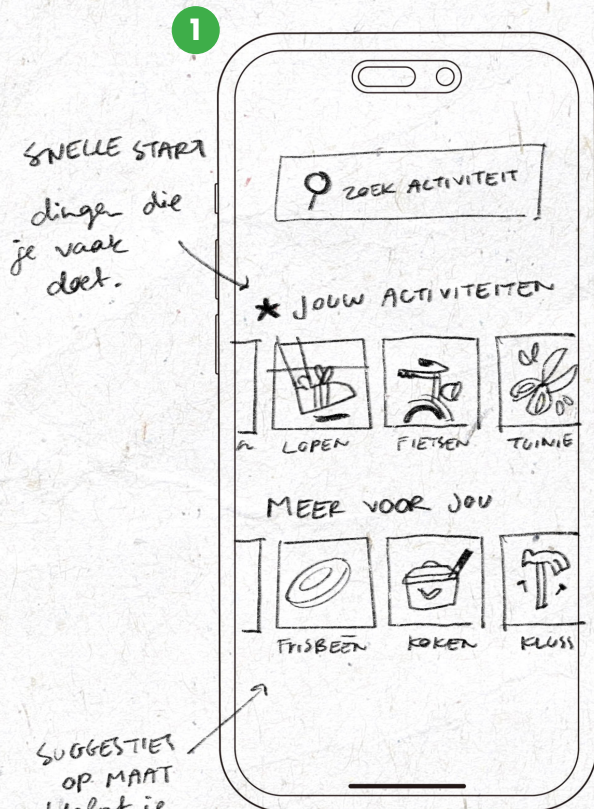 1
SNELLE START
dingen die
je vaak
doet.
ZOEK ACTIVITEIT
* JOUW ACTIVITEITEN
LOPEN
FIETSEN
TUINIE
MEER VOOR JOU
FRISBEEËN
KOKEN
KLUSS
SUGGESTIES
OP MAAT